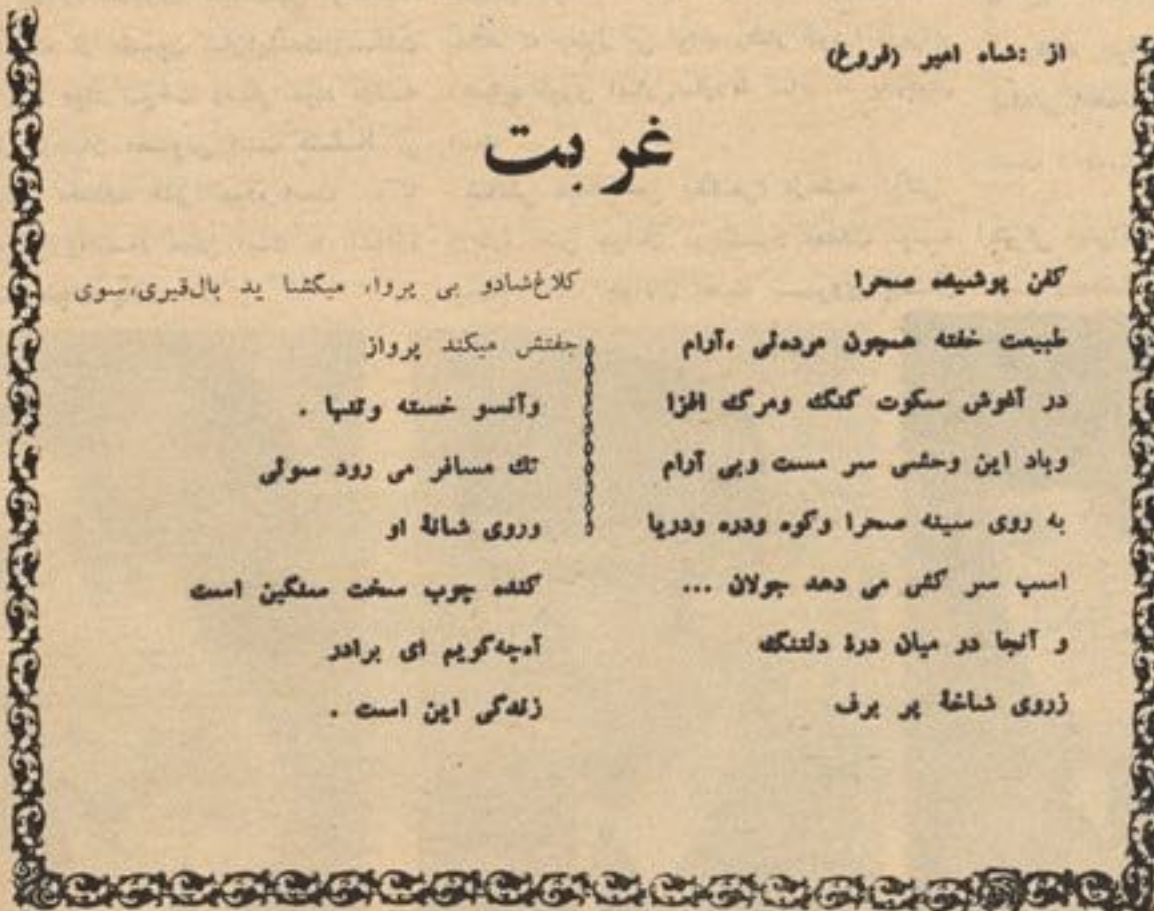 از :شاه امیر (فروغ)
غربت
کفن پوشیده صحرا
طبیعت خفته همچون مرده‌ئی ،آرام
در آغوش سکوت گنگ ومرگ افزا
وباد این وحشی سر مست وبی آرام
به روی سینه صحرا وکوه ودره ودریا
اسپ سر کش می دهد جولان ...
و آنجا در میان درهٔ دلتنگ
زروی شاخهٔ پر برف
کلاغ‌شادو بی پروا، میکشا ید بال‌قیری،سوی
جفتش میکند پرواز
وآنسو خسته وتنها .
تك مسافر می رود سوئی
وروی شانهٔ او
کنده چوب سخت سنگین است
آه‌چه‌گویم ای برادر
زندگی این است .